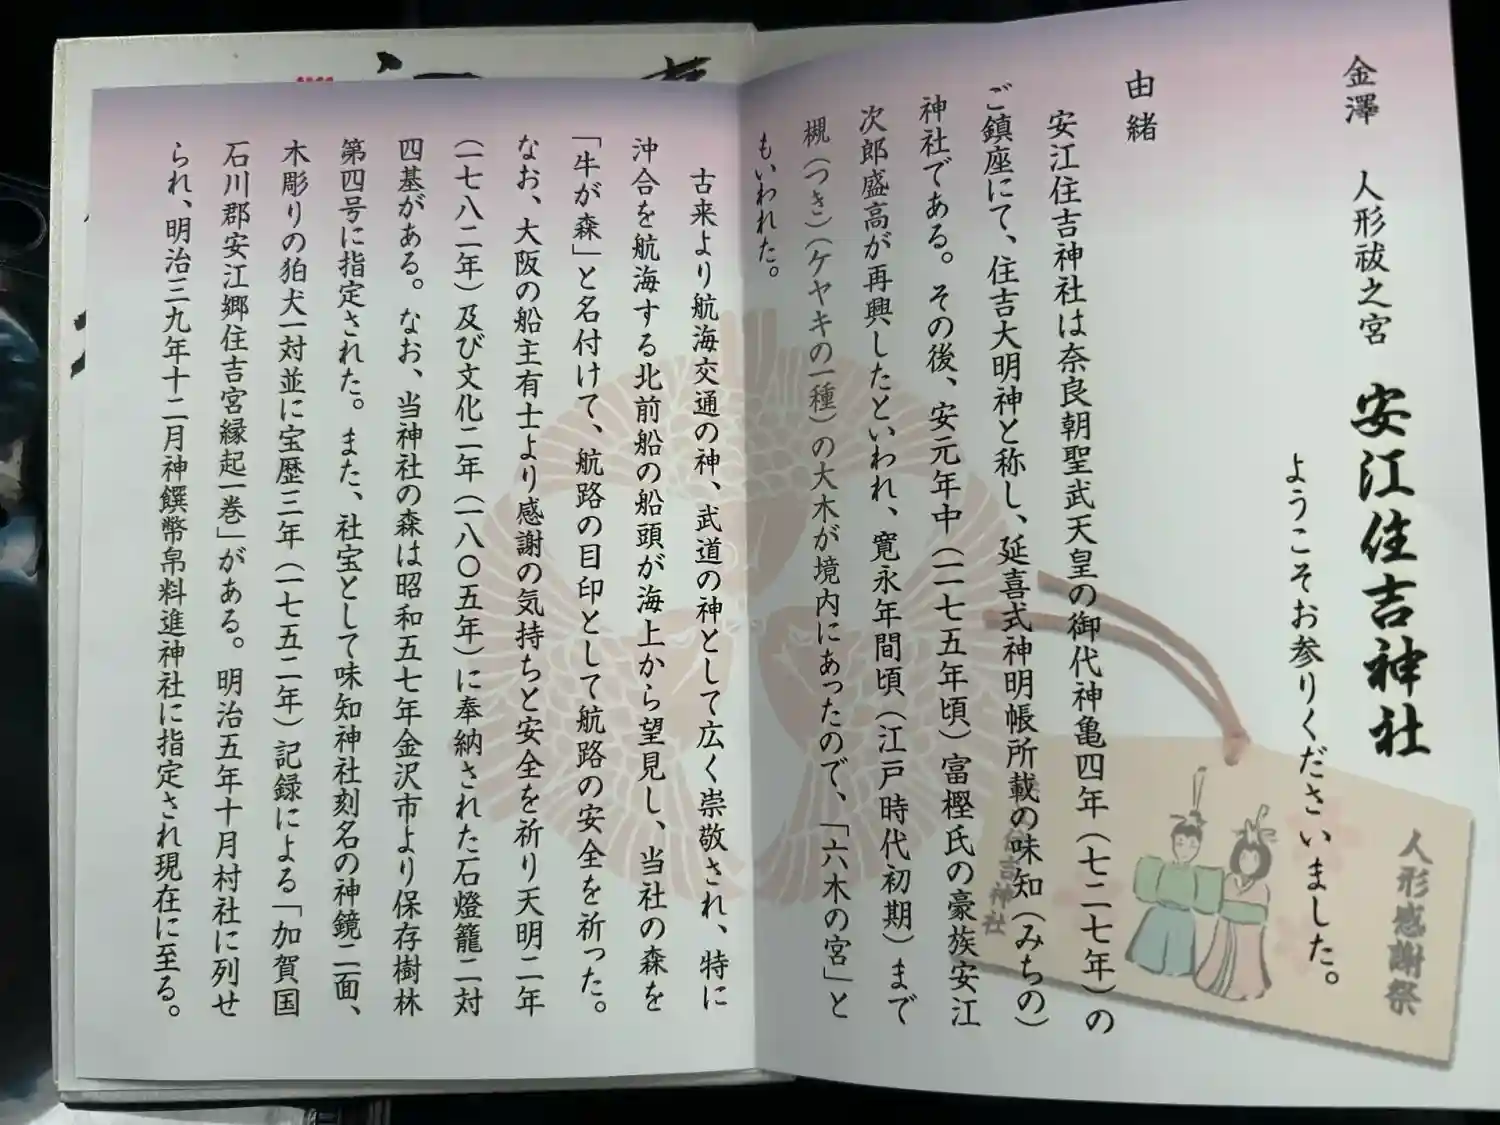 金澤 人形祓之宮 安江住吉神社
ようこそお参りくださいました。
由緒
安江住吉神社は奈良朝聖武天皇の御代神亀四年（七二七年）の
ご鎮座にて、住吉大明神と称し、延喜式神明帳所載の味知（みちの）
神社である。その後、安元年中（一一七五年頃）富樫氏の豪族安江
次郎盛高が再興したといわれ、寛永年間頃（江戸時代初期）まで
槻（つき）（ケヤキの一種）の大木が境内にあったので、「六木の宮」と
もいわれた。
古来より航海交通の神、武道の神として広く崇敬され、特に
沖合を航海する北前船の船頭が海上から望見し、当社の森を
「牛が森」と名付けて、航路の目印として航路の安全を祈った。
なお、大阪の船主有士より感謝の気持ちと安全を祈り天明二年
（一七八二年）及び文化二年（一八〇五年）に奉納された石燈籠二対
四基がある。なお、当神社の森は昭和五七年金沢市より保存樹林
第四号に指定された。また、社宝として味知神社刻名の神鏡二面、
木彫りの狛犬一対並に宝歴三年（一七五二年）記録による「加賀国
石川郡安江郷住吉宮縁起一巻」がある。明治五年十月村社に列せ
られ、明治三九年十二月神饌幣帛料進神社に指定され現在に至る。
人形感謝祭
吉神社